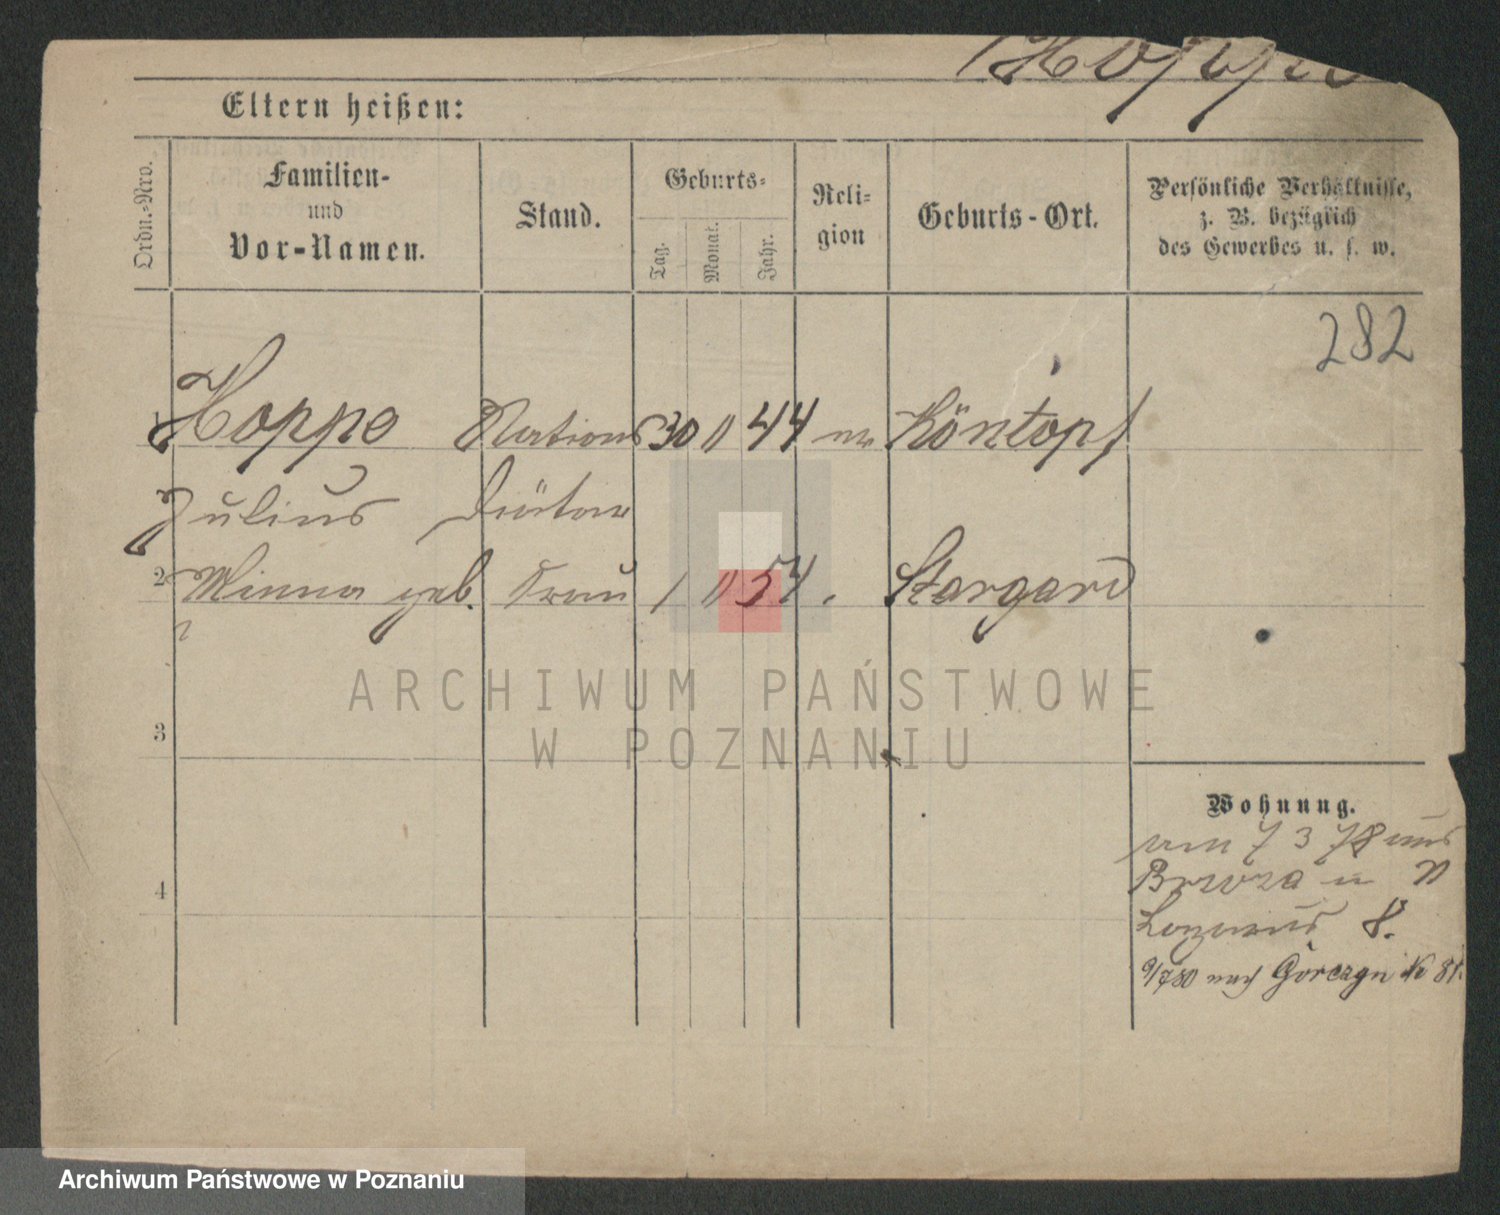 Hoppe
Eltern heißen:
Ordn.-Nro.
Familien-
und
Vor-Namen.
Stand.
Geburts-
Tag.
Monat.
Jahr.
Reli-
gion
Geburts-Ort.
Persönliche Verhältnisse,
z. B. bezüglich
des Gewerbes u. s. w.
282
1 Hoppe Stations 30 11 44 ev Köntopf
Julius Diätar
2 Minna geb. Frau 1 11 54. Stargard
?
3
4
Wohnung.
am 7 3 78 aus
Brzoza in N
Lazarus 8.
9/7 80 nach Gorczyn No 81.
ARCHIWUM PAŃSTWOWE
W POZNANIU
Archiwum Państwowe w Poznaniu